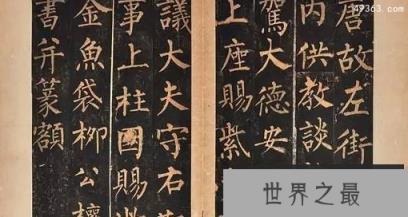 唐故左街
内供教談
駕大德安
上座賜紫
議大夫守右
事上柱國賜
金魚袋柳公權
書并篆額
世界之最
49363.com